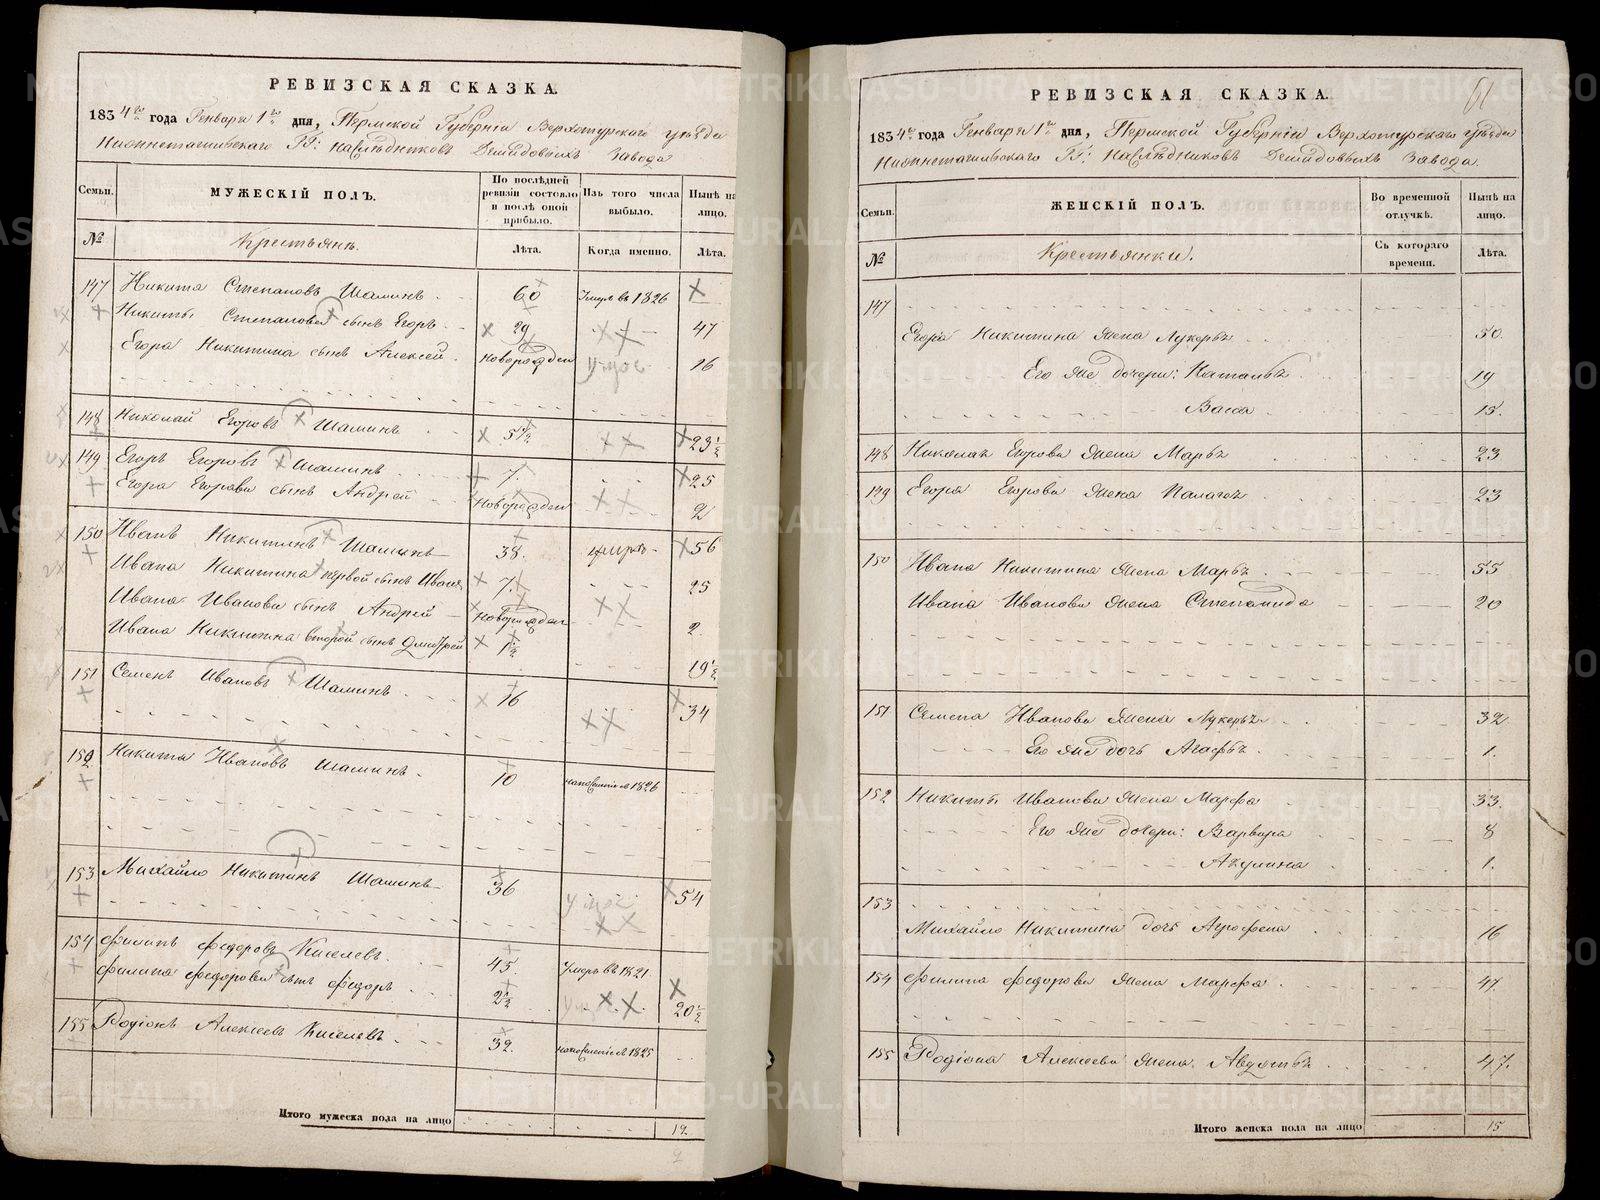 РЕВИЗСКАЯ СКАЗКА.
1834го года Генваря 1го дня, Пермской Губерніи Верхотурскаго уѣзда
Нижнетагильскаго ГГ: наслѣдниковъ Демидовыхъ завода
Семьи. МУЖЕСКІЙ ПОЛЪ. По послѣдней ревизіи состояло и послѣ оной прибыло. Изъ того числа выбыло. Нынѣ на лицо.
№ Крестьянъ. Лѣта. Когда именно. Лѣта.
147 Никита Степановъ Шаминъ 60 Умеръ въ 1826
Никиты Степанова сынъ Егоръ 29 47
Егора Никитина сынъ Алексей новорожден 16
148 Николай Егоровъ Шаминъ 5 1/2 23 1/2
149 Егоръ Егоровъ Шаминъ 7 25
Егора Егорова сынъ Андрей новорожден 2
150 Иванъ Никитинъ Шаминъ 38 умеръ 56
Ивана Никитина первой сынъ Иванъ 7 25
Ивана Иванова сынъ Андрей новорожден 2
Ивана Никитина второй сынъ Дмитрей 1 1/2 19 1/2
151 Семенъ Ивановъ Шаминъ 16 34
152 Никита Ивановъ Шаминъ 10 1826
153 Михайло Никитинъ Шаминъ 36 54
154 Филипъ Федоровъ Киселевъ 45 Умеръ въ 1821
Филипа Федорова сынъ Федоръ 2 1/2 20 1/2
155 Родіонъ Алексеевъ Киселевъ 32 1825
Итого мужеска пола на лицо 12
РЕВИЗСКАЯ СКАЗКА.
1834го года Генваря 1го дня, Пермской Губерніи Верхотурскаго уѣзда
Нижнетагильскаго ГГ: наслѣдниковъ Демидовыхъ завода.
Семьи. ЖЕНСКІЙ ПОЛЪ. Во временной отлучкѣ. Нынѣ на лицо.
№ Крестьянки. Съ котораго времени. Лѣта.
147
Егора Никитина жена Лукерья 50
Его же дочери: Наталья 19
Васса 15
148 Николая Егорова жена Марья 23
149 Егора Егорова жена Палагея 23
150 Ивана Никитина жена Марья 55
Ивана Иванова жена Степанида 20
151 Семена Иванова жена Лукерья 32
Его же дочь Агафья 1
152 Никиты Иванова жена Марфа 33
Его же дочери: Варвара 8
Акулина 1
153
Михайло Никитина дочь Агрофена 16
154 Филипа Федорова жена Марфа 47
155 Родіона Алексеева жена Авдотья 47
Итого женска пола на лицо 15
METRIKI.GASO-URAL.RU